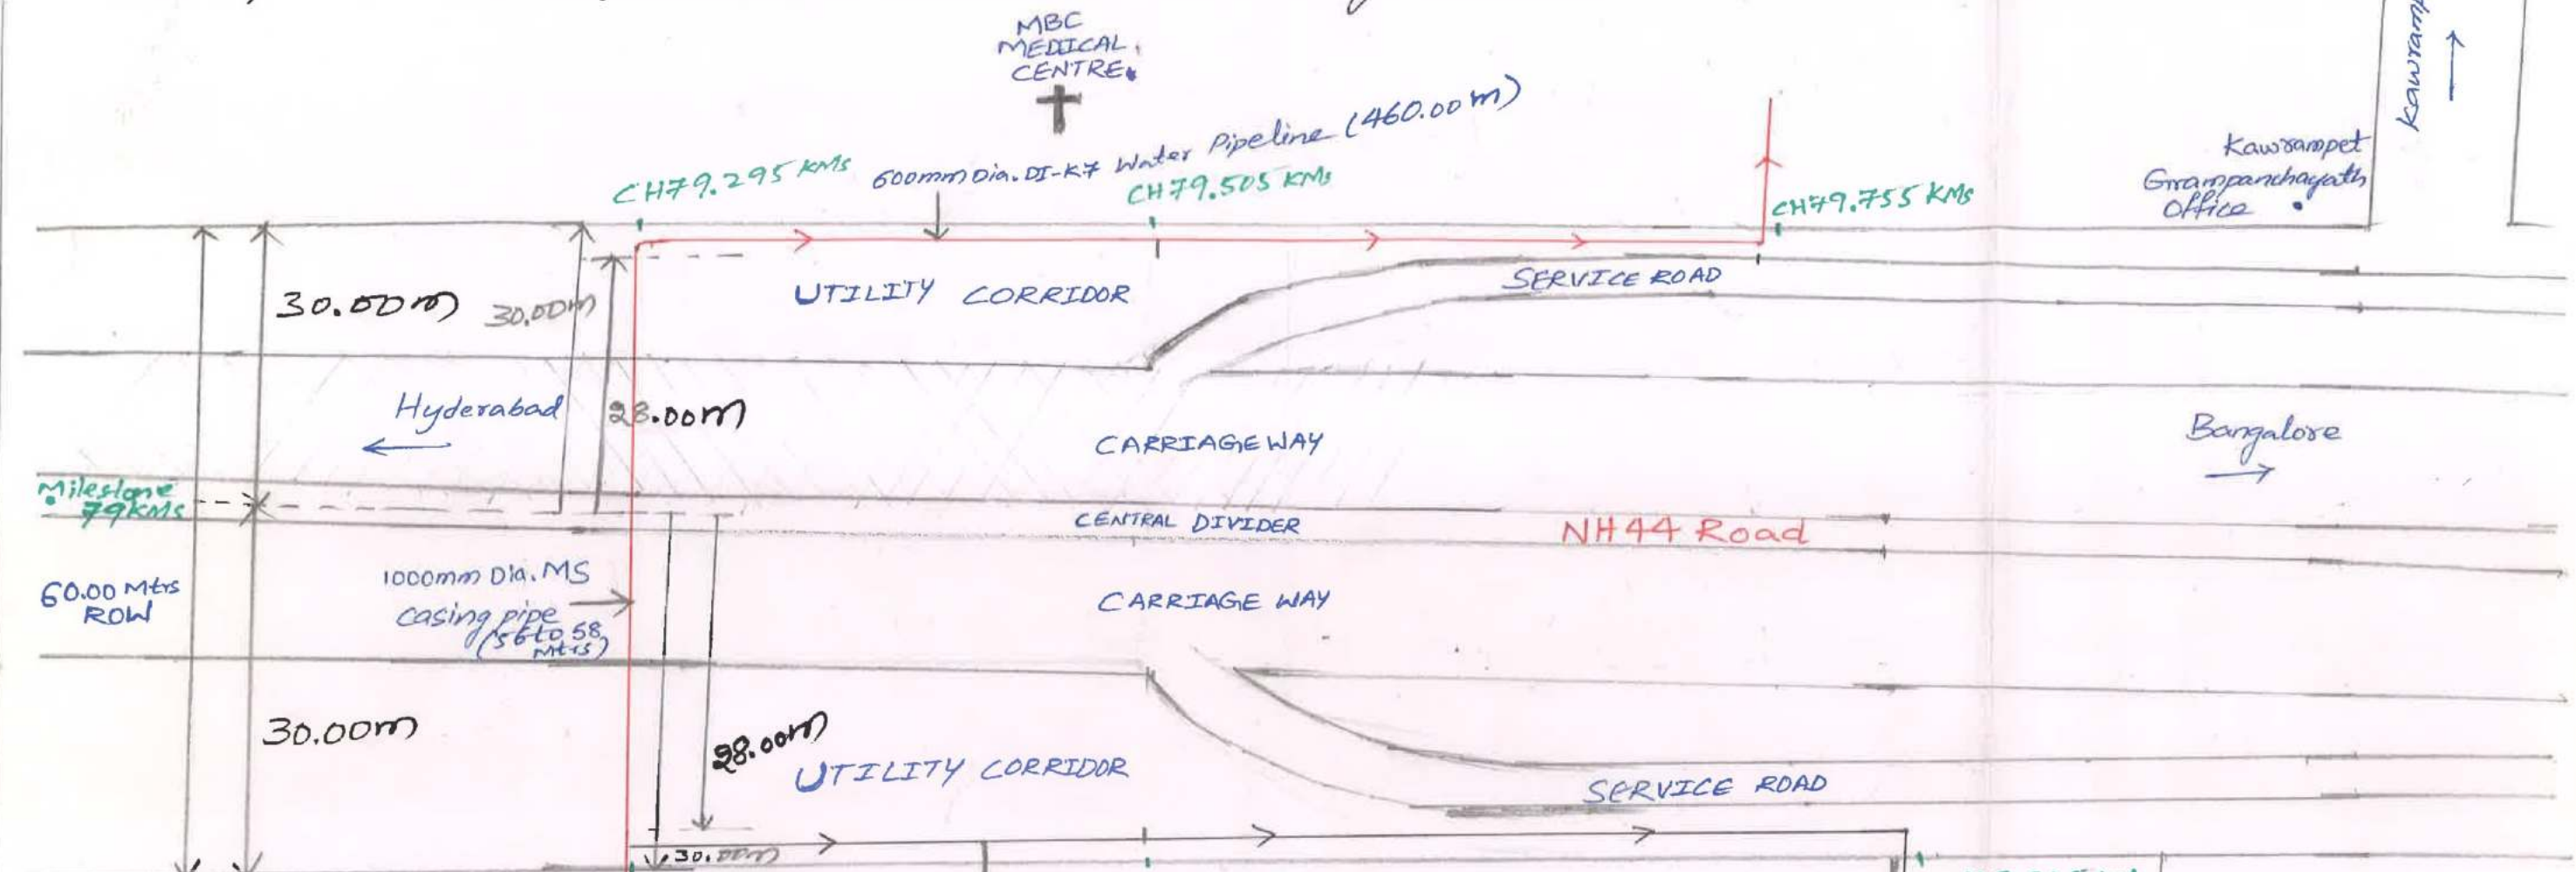 MBC
MEDICAL
CENTRE
Kawrampet
Grampanchayath
Office
CH79.295 KMS
600mm Dia. DI-K7 Water Pipeline (460.00m)
CH79.505 KMS
CH79.755 KMS
30.00m
30.00m
UTILITY CORRIDOR
SERVICE ROAD
Hyderabad
28.00m
CARRIAGEWAY
Bangalore
Milestone
79KMS
CENTRAL DIVIDER
NH44 Road
60.00 Mtrs
ROW
1000mm Dia. MS
Casing pipe
(56 to 58
Mtrs)
CARRIAGE WAY
30.00m
28.00m
UTILITY CORRIDOR
SERVICE ROAD
30.00m